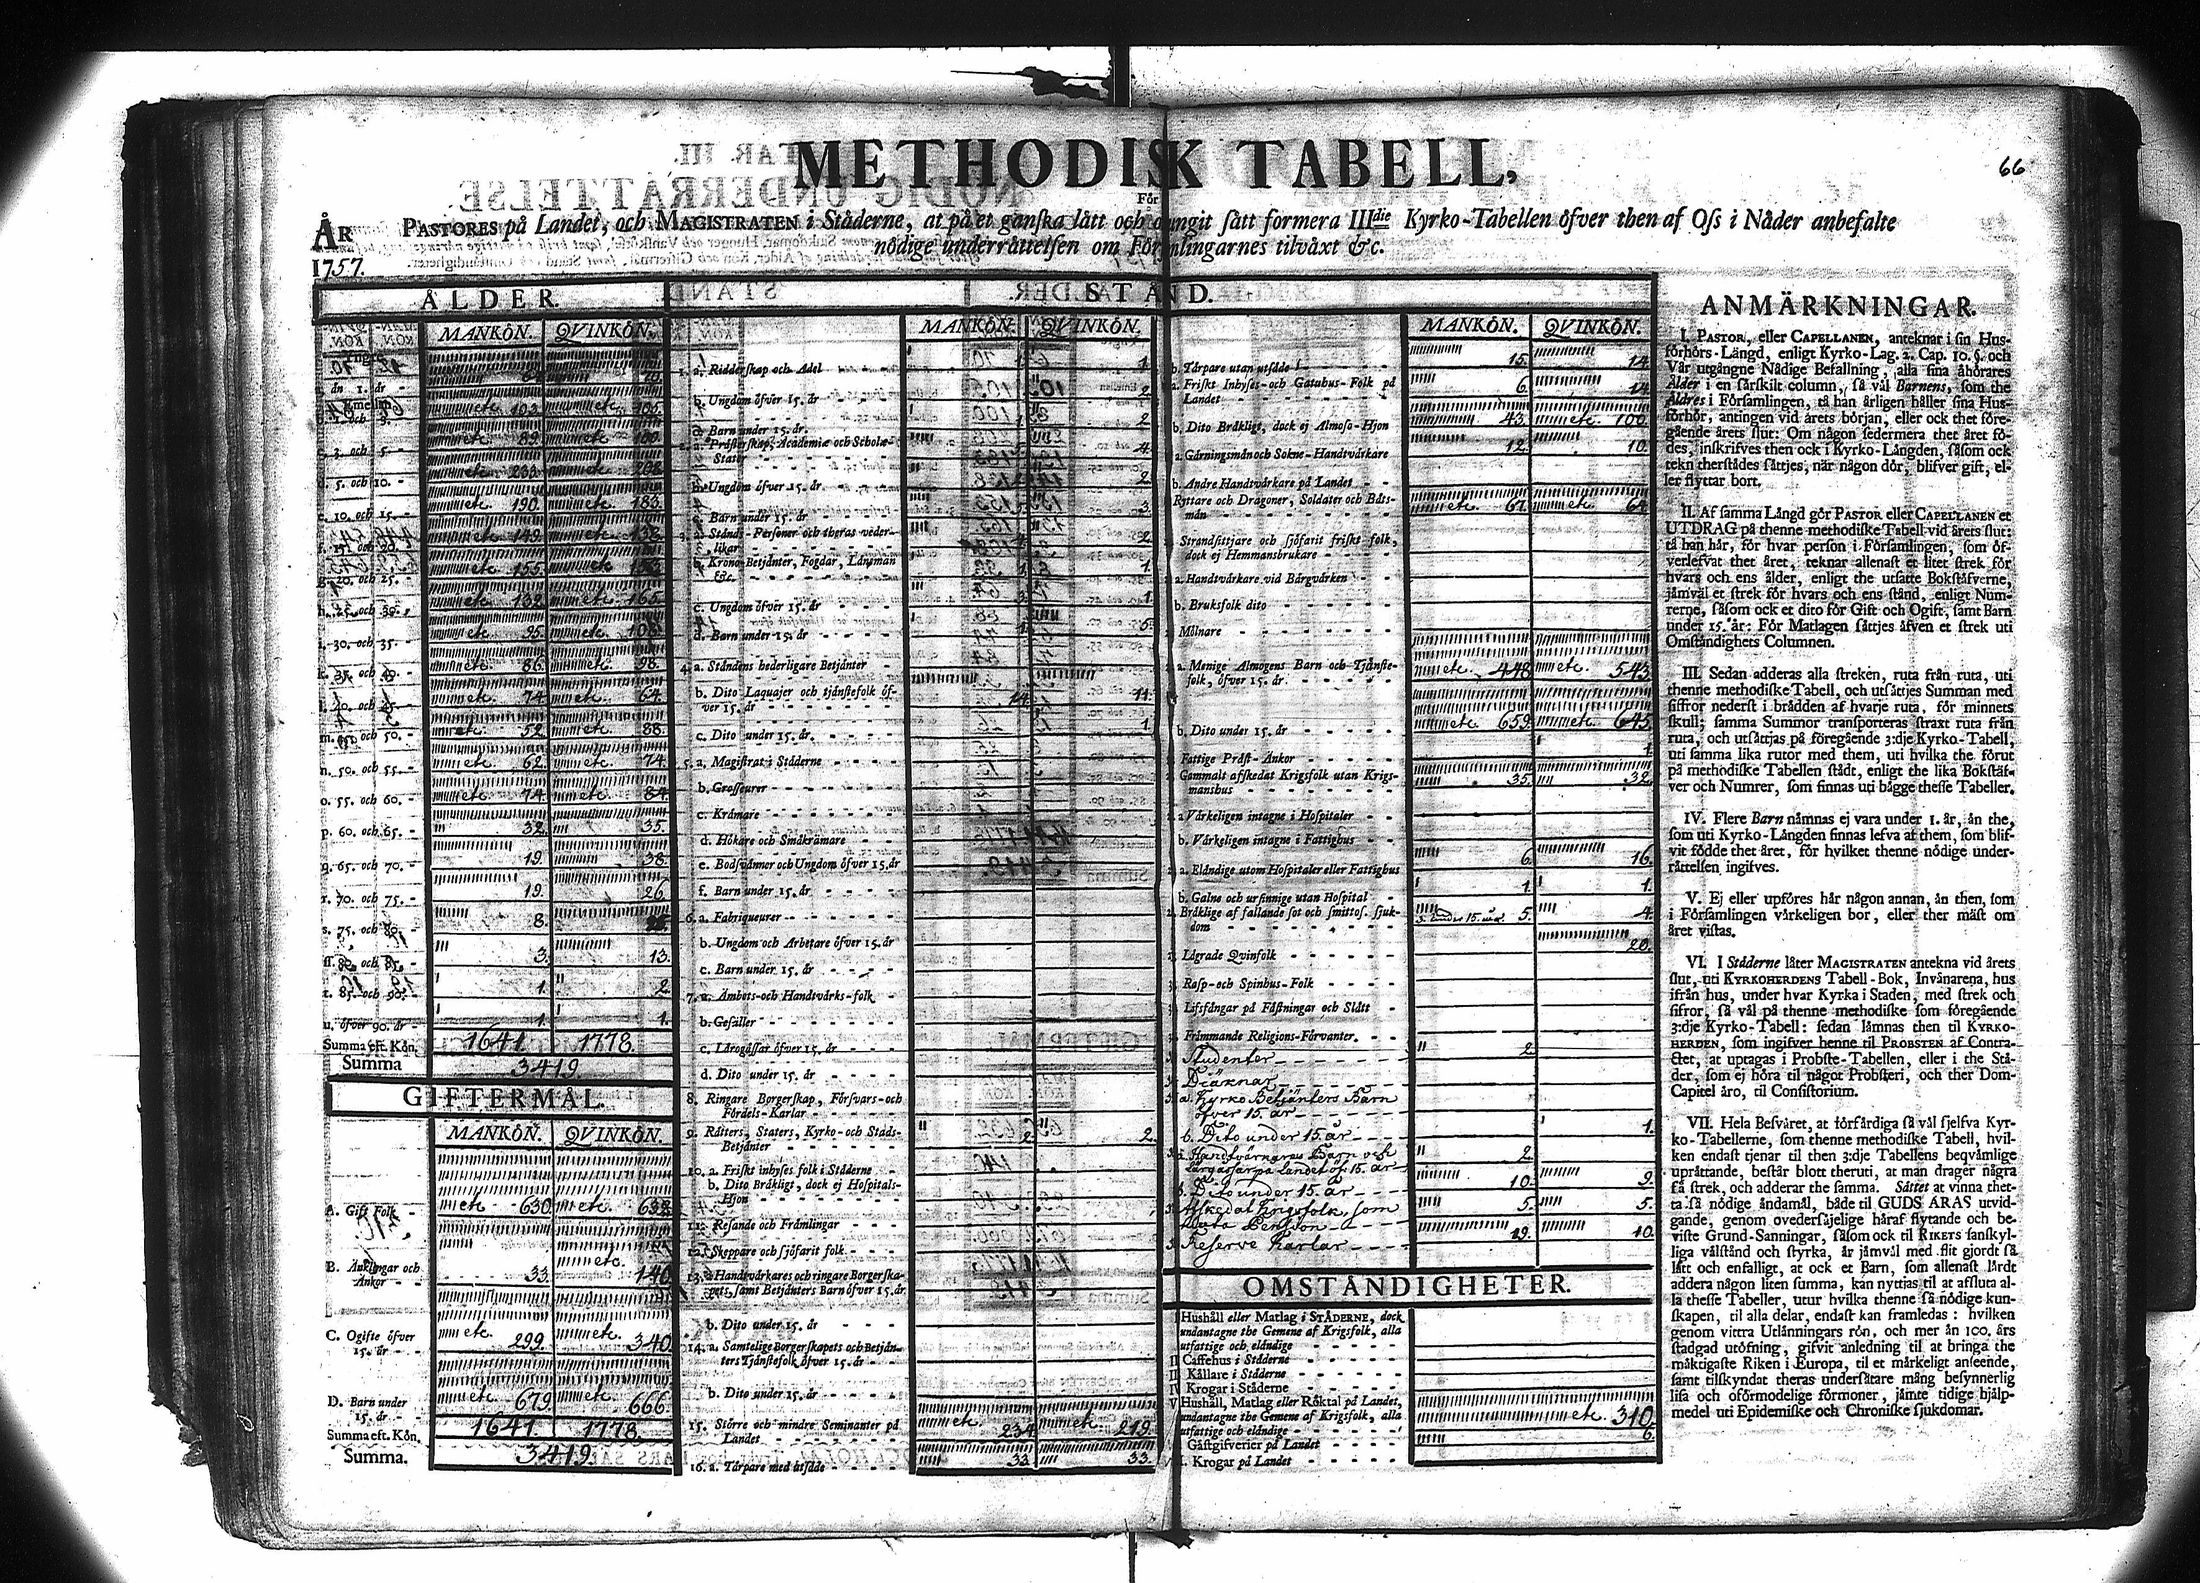 METHODISK TABELL,
66
För
ÅR PASTORES på Landet, och MAGISTRATEN i Städerne, at på et ganska lätt och omgit sått formera IIIdie Kyrko-Tabellen öfver then af Oss i Nåder anbefalte
nödige underrättelsen om Församlingarnes tilväxt &c.
1757.
ÅLDER.
MANKÖN. QVINKÖN.
Yngre
än 1. år
emellan
1. och 3. etc. 103. etc. 105.
c. 3. och 5. etc. 89. etc. 100.
d. 5. och 10. etc. 233. etc. 208.
e. 10. och 15. etc. 190. etc. 183.
f. 15. och 20. etc. 149. etc. 138.
g. 20. och 25. etc. 155. etc.
h. 25. och 30. etc. 132. etc. 165.
i. 30. och 35. etc. 95. etc. 108.
k. 35. och 40. etc. 86. etc. 98.
l. 40. och 45. etc. 74. etc. 64.
m. och 50. etc. 52. etc. 88.
n. 50. och 55. etc. 62. etc. 74.
o. 55. och 60. etc. 74. etc. 84.
p. 60. och 65. 32. 35.
q. 65. och 70. 19. 38.
r. 70. och 75. 19. 26.
s. 75. och 80. 8.
ſſ. 80. och 85. 3. 13.
t. 85. och 90. 1. 2.
u. öfver 90. år 1. 1.
Summa eft. Kön. 1641. 1778.
Summa 3419.
GIFTERMÅL.
MANKÖN. QVINKÖN.
A. Gift Folk etc. 630. etc. 632.
B. Änklingar och
Änkor 33. etc. 140.
C. Ogifte öfver
15. år etc. 299. etc. 340.
D. Barn under
15. år etc. 679. etc. 666.
Summa eft. Kön. 1641. 1778.
Summa. 3419.
STÅND.
MANKÖN. QVINKÖN.
1. a. Ridderskap och Adel 1.
b. Ungdom öfver 15. år 2.
c. Barn under 15. år. 1. 2.
2. a. Prästerskap, Academiæ och Scholæ-
Stater 4.
b. Ungdom öfver 15. år 2.
c. Barn under 15. år 3.
3. a. Stånds-Personer och theras veder-
likar 2.
b. Krono-Betjänter, Fogdar, Länsmän
&c. 1. 1.
c. Ungdom öfver 15. år 3. 1.
d. Barn under 15. år 1. 5.
4. a. Ståndens hederligare Betjänter
b. Dito Laquajer och tjänstefolk öf-
ver 15. år 14. 11.
c. Dito under 15. år. 1.
5. a. Magistrat i Städerne
b. Grosseurer
c. Krämare
d. Hökare och Småkrämare
e. Bodsvänner och Ungdom öfver 15. år
f. Barn under 15. år
6. a. Fabriqueurer
b. Ungdom och Arbetare öfver 15. år
c. Barn under 15. år
7. a. Ämbets- och Handtvärks-folk
b. Gesäller
c. Lärogässar öfver 15. år
d. Dito under 15. år
8. Ringare Borgerskap, Försvars- och
Fördels-Karlar
9. Rätters, Staters, Kyrko- och Stads-
Betjänter 2. 2.
10. a. Friskt inhyses folk i Städerne
b. Dito Bräkligt, dock ej Hospitals-
Hjon
11. Resande och Främlingar
12. Skeppare och sjöfarit folk
13. a. Handtvärkares och ringare Borgerska-
pets, samt Betjänters Barn öfver 15. år
b. Dito under 15. år
14. a. Samtelige Borgerskapets och Betjän-
ters Tjänstefolk öfver 15. år
b. Dito under 15. år
15. Större och mindre Seminanter på
Landet etc. 234. etc. 219.
16. a. Torpare med utsäde 33. 33.
MANKÖN. QVINKÖN.
b. Torpare utan utsäde 15. 14.
a. Friskt Inhyses- och Gatuhus-Folk på
Landet 6. 14.
b. Dito Bräkligt, dock ej Almoso-Hjon 43. etc. 100.
a. Gärningsmän och Sokne-Handtvärkare 12. 10.
b. Andre Handtvärkare på Landet
Ryttare och Dragoner, Soldater och Båts-
män etc. 67. etc. 64.
Strandsittjare och sjöfarit friskt folk,
dock ej Hemmansbrukare
a. Handtvärkare vid Bärgvärken
b. Bruksfolk dito
Mölnare
a. Menige Almogens Barn och Tjänste-
folk, öfver 15. år etc. 448. etc. 543.
b. Dito under 15. år etc. 659. etc. 645.
Fattige Präst-Änkor 1.
Gammalt afskedat Krigsfolk utan Krigs-
manshus 35. 32.
a. Värkeligen intagne i Hospitaler
b. Värkeligen intagne i Fattighus
a. Eländige utom Hospitaler eller Fattighus 6. 16.
b. Galne och ursinnige utan Hospital 1. 1.
Bräklige af fallande sot och smittos. sjuk-
dom 5. 4.
Lägrade Qvinfolk 20.
Rasp- och Spinhus-Folk
Lifsfångar på Fästningar och Slått
Främmande Religions-Förvanter.
Studenter 2.
Djäknar
a. Kyrko Betjänters Barn
öfver 15. år
b. Dito under 15. år 1.
Handtvärkares Barn och
lärgåssar på landet öf. 15. år 2.
b. Dito under 15. år 10. 9.
Afskedat Krigsfolk, som
niuta Pension 5. 5.
Reserve Karlar 19. 10.
OMSTÄNDIGHETER.
Hushåll eller Matlag i STÄDERNE, dock
undantagne the Gemene af Krigsfolk, alla
utfattige och eländige
II Caffehus i Städerne
III Källare i Städerne
IV Krogar i Städerne
V Hushåll, Matlag eller Röktal på Landet,
undantagne the Gemene af Krigsfolk, alla
utfattige och eländige etc. 310.
Gästgifverier på Landet 6.
Krogar på Landet
ANMÄRKNINGAR.
I. PASTOR, eller CAPELLANEN, anteknar i sin Hus-
förhörs-Längd, enligt Kyrko-Lag. 2. Cap. 10. §. och
Vår utgångne Nådige Befallning, alla sina åhörares
Ålder i en särskilt column, så väl Barnens, som the
Äldres i Församlingen, tå han årligen håller sina Hus-
förhör, antingen vid årets början, eller ock thet före-
gående årets slut: Om någon sedermera thet året fö-
des, inskrifves then ock i Kyrko-Längden, såsom ock
tekn therstädes sättjes, när någon dör, blifver gift, el-
ler flyttar bort.
II. Af samma Längd gör PASTOR eller CAPELLANEN et
UTDRAG på thenne methodiske Tabell vid årets slut:
tå han här, för hvar person i Församlingen, som öf-
verlefvat thet året, teknar allenast et litet strek för
hvars och ens ålder, enligt the utsatte Bokstäfverne,
jämväl et strek för hvars och ens stånd, enligt Num-
rerne, såsom ock et dito för Gift och Ogift, samt Barn
under 15. år: För Matlagen sättjes äfven et strek uti
Omständighets Columnen.
III. Sedan adderas alla streken, ruta från ruta, uti
thenne methodiske Tabell, och utsättjes Summan med
siffror nederst i brädden af hvarje ruta, för minnets
skull; samma Summor transporteras straxt ruta från
ruta, och utsättjas på föregående 3:dje Kyrko-Tabell,
uti samma lika rutor med them, uti hvilka the förut
på methodiske Tabellen städt, enligt the lika Bokstäf-
ver och Numrer, som finnas uti bägge thesse Tabeller.
IV. Flere Barn nämnas ej vara under 1. år, än the,
som uti Kyrko-Längden finnas lefva af them, som blif-
vit födde thet året, för hvilket thenne nödige under-
rättelsen ingifves.
V. Ej eller upföres här någon annan, än then, som
i Församlingen värkeligen bor, eller ther mäst om
året vistas.
VI. I Städerne låter MAGISTRATEN antekna vid årets
slut, uti KYRKOHERDENS Tabell-Bok, Invånarena, hus
ifrån hus, under hvar Kyrka i Staden, med strek och
sifror, så väl på thenne methodiske som föregående
3:dje Kyrko-Tabell: sedan lämnas then til KYRKO-
HERDEN, som ingifver henne til PROBSTEN af Contra-
ctet, at uptagas i Probste-Tabellen, eller i the Stä-
der, som ej höra til något Probsteri, och ther Dom-
Capitel äro, til Consistorium.
VII. Hela Besväret, at förfärdiga så väl sjelfva Kyr-
ko-Tabellerne, som thenne methodiske Tabell, hvil-
ken endast tjenar til then 3:dje Tabellens beqvämlige
uprättande, består blott theruti, at man drager några
få strek, och adderar the samma. Sättet at vinna thet-
ta så nödige ändamål, både til GUDS ÄRAS utvid-
gande, genom ovedersäjelige häraf flytande och be-
viste Grund-Sanningar, såsom ock til RIKETS sanskyl-
liga välstånd och styrka, är jämväl med flit gjordt så
lätt och enfalligt, at ock et Barn, som allenast lärdt
addera någon liten summa, kan nyttjas til at afsluta al-
la thesse Tabeller, utur hvilka thenne så nödige kun-
skapen, til alla delar, endast kan framledas: hvilken
genom vittra Utlänningars rön, och mer än 100. års
stadgad utöfning, gifvit anledning til at bringa the
mäktigaste Riken i Europa, til et märkeligt anseende,
samt tilskyndat theras undersåtare mång besynnerlig
lisa och oförmodelige förmoner, jämte tidige hjälp-
medel uti Epidemiske och Chroniske sjukdomar.